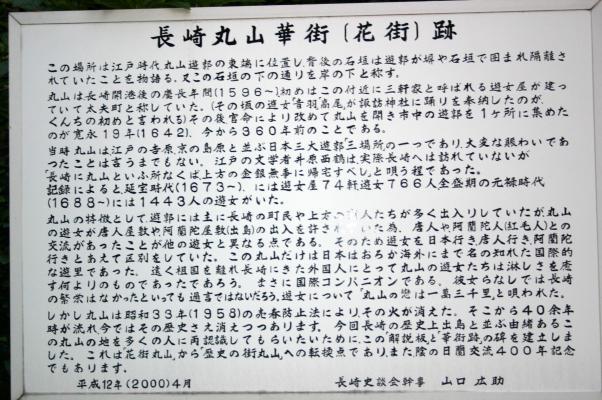 長崎丸山華街(花街)跡
この場所は江戸時代丸山遊郭の東端に位置し、背後の石垣は遊郭が塀や石垣で囲まれ隔離さ
れていたことを物語る。又この石垣の下の通りを岸の下と称す。
丸山は長崎開港後の慶長年間(1596〜)初めはこの付近に三軒家と呼ばれる遊女屋が建っ
ていて太夫町と称していた。(その頃の遊女「音羽」「高尾」が諏訪神社に踊りを奉納したのが、
くんちの初めと言われる)その後官命により改めて丸山を開き市中の遊郭を1ヶ所に集めた
のが寛永19年(1642)、今から360年前のことである。
当時丸山は江戸の吉原京の島原と並ぶ日本三大遊郭「三場所」の一つであり、大変な賑わいであ
ったことは言うまでもない。江戸の文学者井原西鶴は実際長崎へは訪れていないが
「長崎に丸山といふ所なくば上方の金銀無事に帰宅すべし」と唄う程であった。
記録によると、延宝時代(1673〜)、には遊女屋74軒遊女766人全盛期の元禄時代
(1688〜)には1443人の遊女がいた。
丸山の特徴として、遊郭には主に長崎の町民や上方の商人たちが多く出入りしていたが、丸山
の遊女が唐人屋敷や阿蘭陀屋敷(出島)の出入を許されていた為、唐人や阿蘭陀人(紅毛人)との
交流があったことが他の遊女と異なる点である。そのため遊女を日本行き、唐人行き、阿蘭陀
行きとあえて区別をしていた。この丸山だけは日本はおろか海外にまで名の知れた国際的
な遊里であった。遠く祖国を離れ長崎にきた外国人にとって丸山の遊女たちは淋しさを癒
す何よりのものであったであろう。まさに国際コンパニオンである。彼女らなしでは長崎
の繁栄はなかったといっても過言ではないだろう。遊女について「丸山の恋は一萬三千里」と唄われた。
しかし丸山は昭和33年(1958)の売春防止法により、その火が消えた。そこから40余年
時が流れ今ではその歴史さえ消えつつあります。今回長崎の歴史上出島と並ぶ由緒あるこ
の丸山の地を多くの人に再認識してもらいたいために、この「解説板」と「華街跡」の碑を建立しま
した。これは「花街丸山」から「歴史の街丸山」への転換点であり、また陰の日蘭交流400年記念
でもあります。
平成12年(2000)4月　　長崎史談会幹事　山口広助